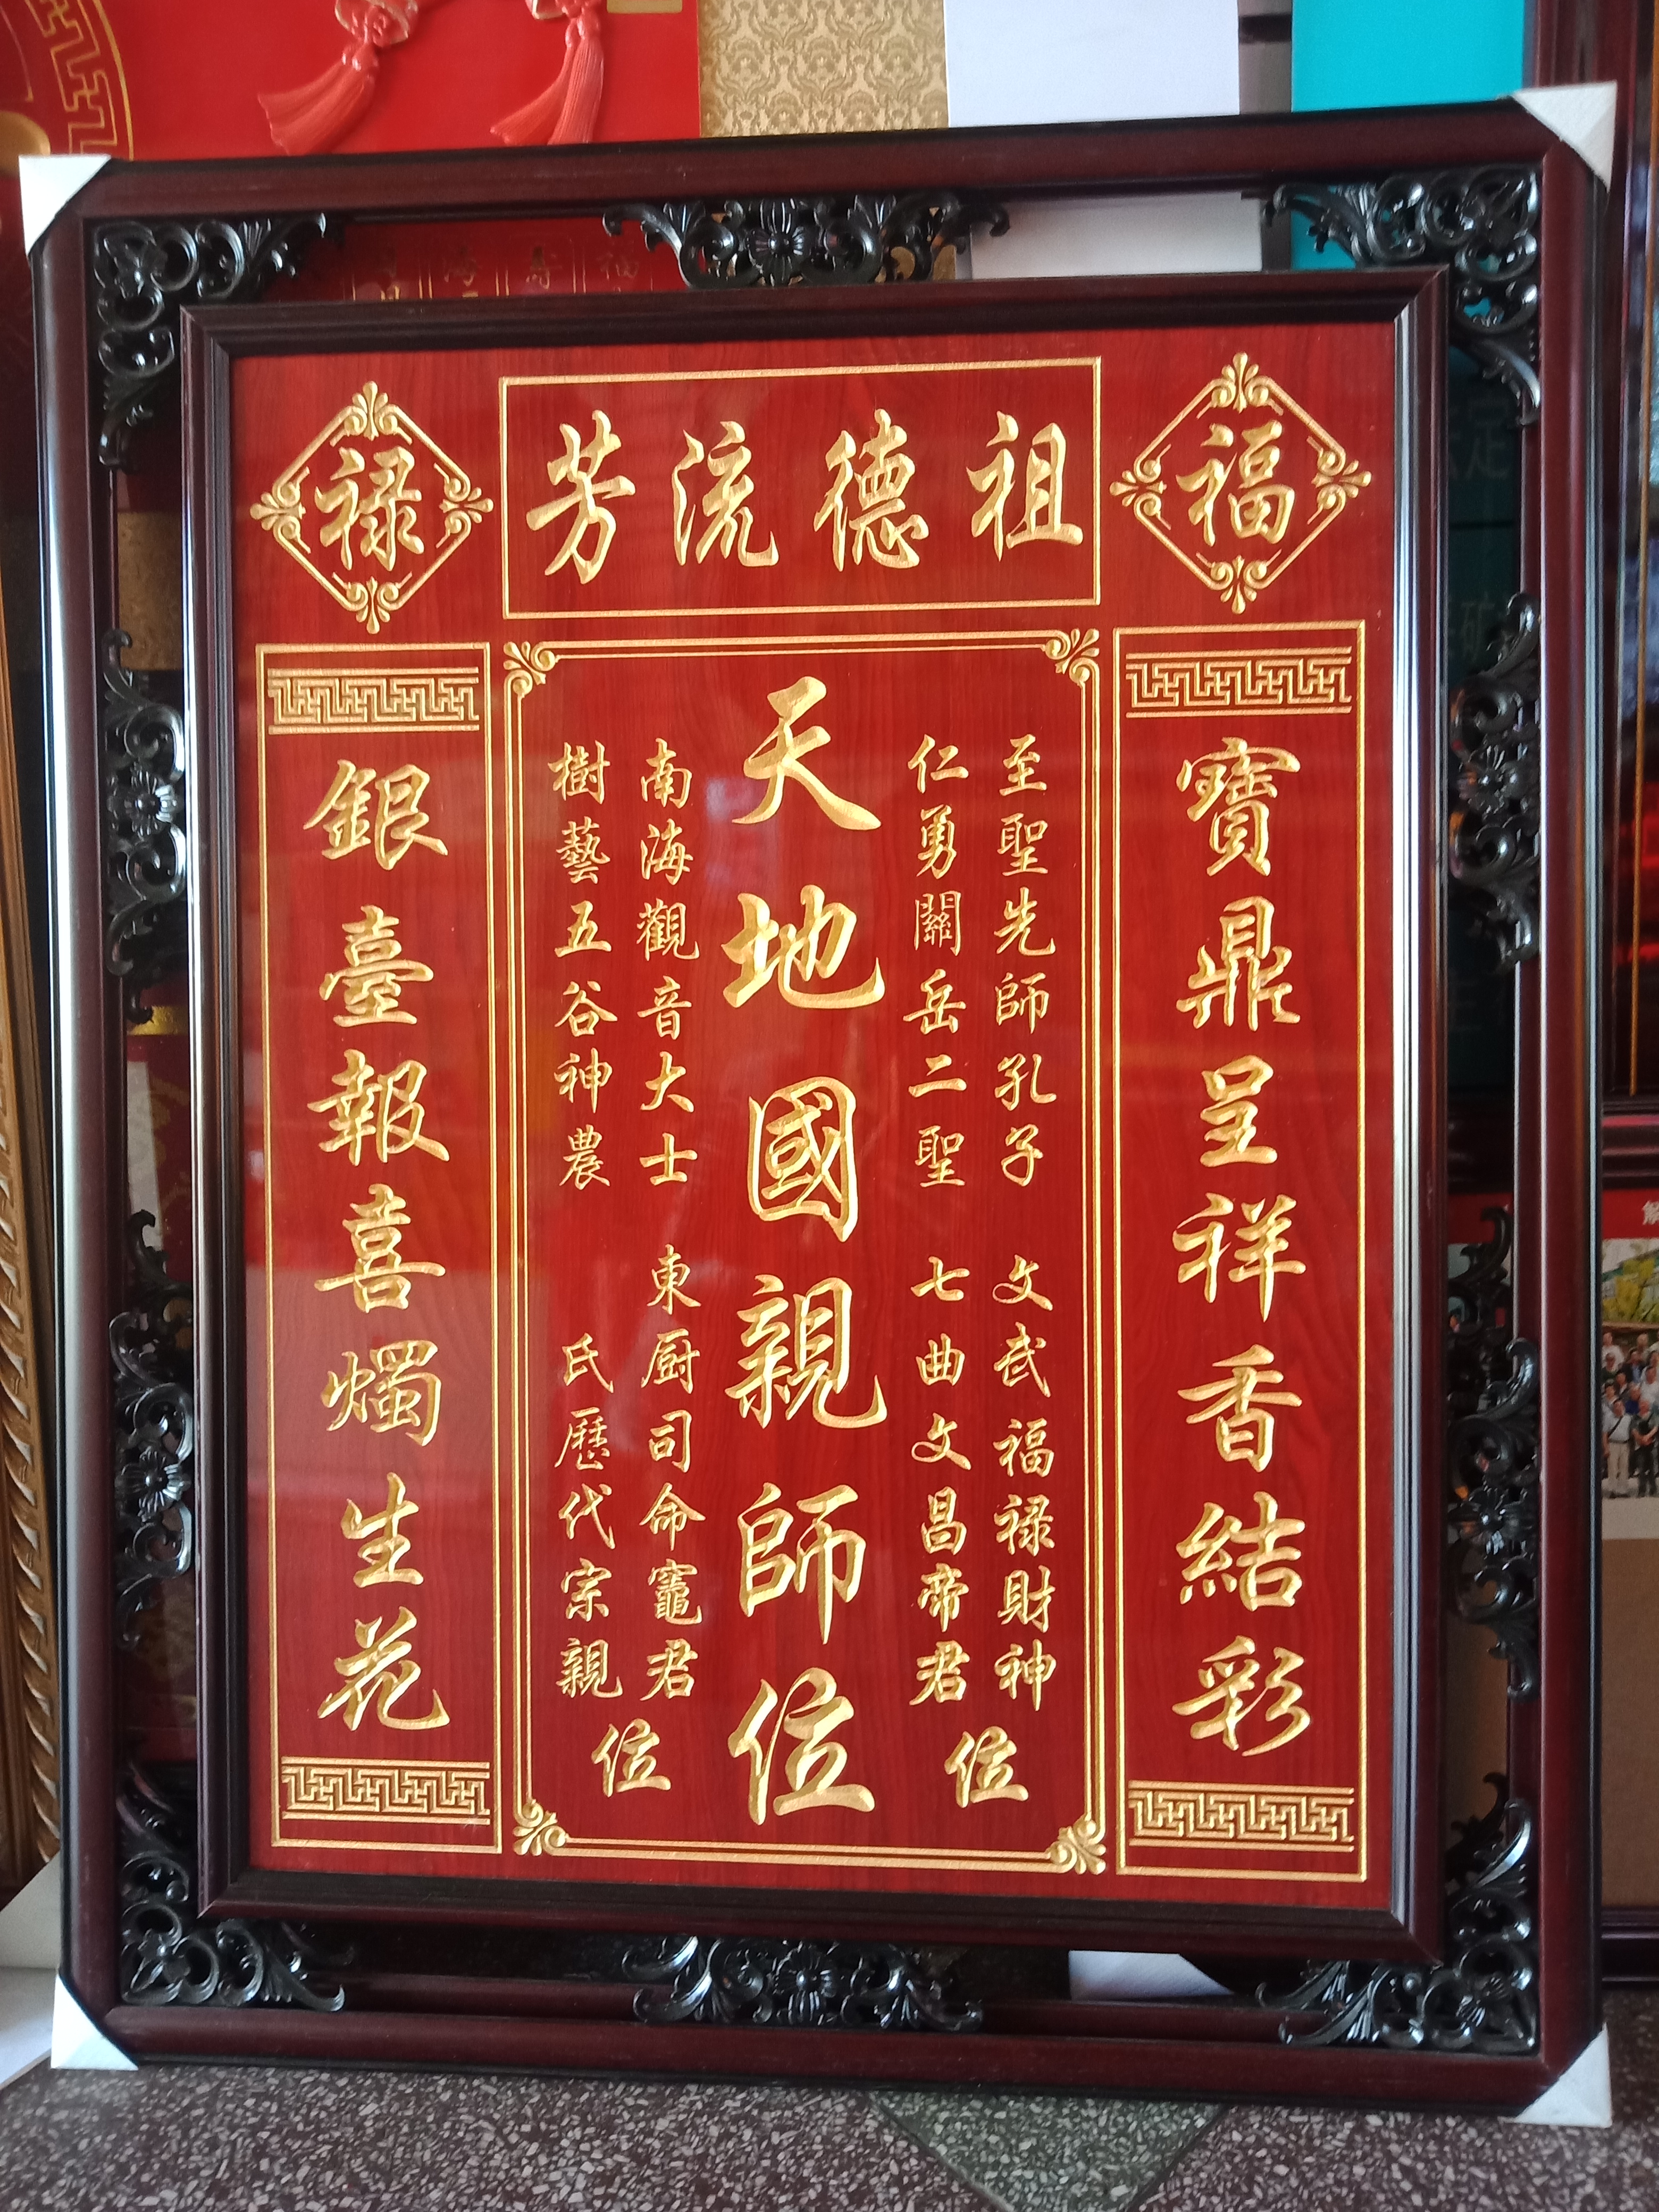 福
祖德流芳
禄
寶鼎呈祥香結彩
至聖先師孔子 文武福禄財神
仁勇關岳二聖 七曲文昌帝君
位
天地國親師位
南海觀音大士 東厨司命竈君
樹藝五谷神農 氏歷代宗親
位
銀臺報喜燭生花